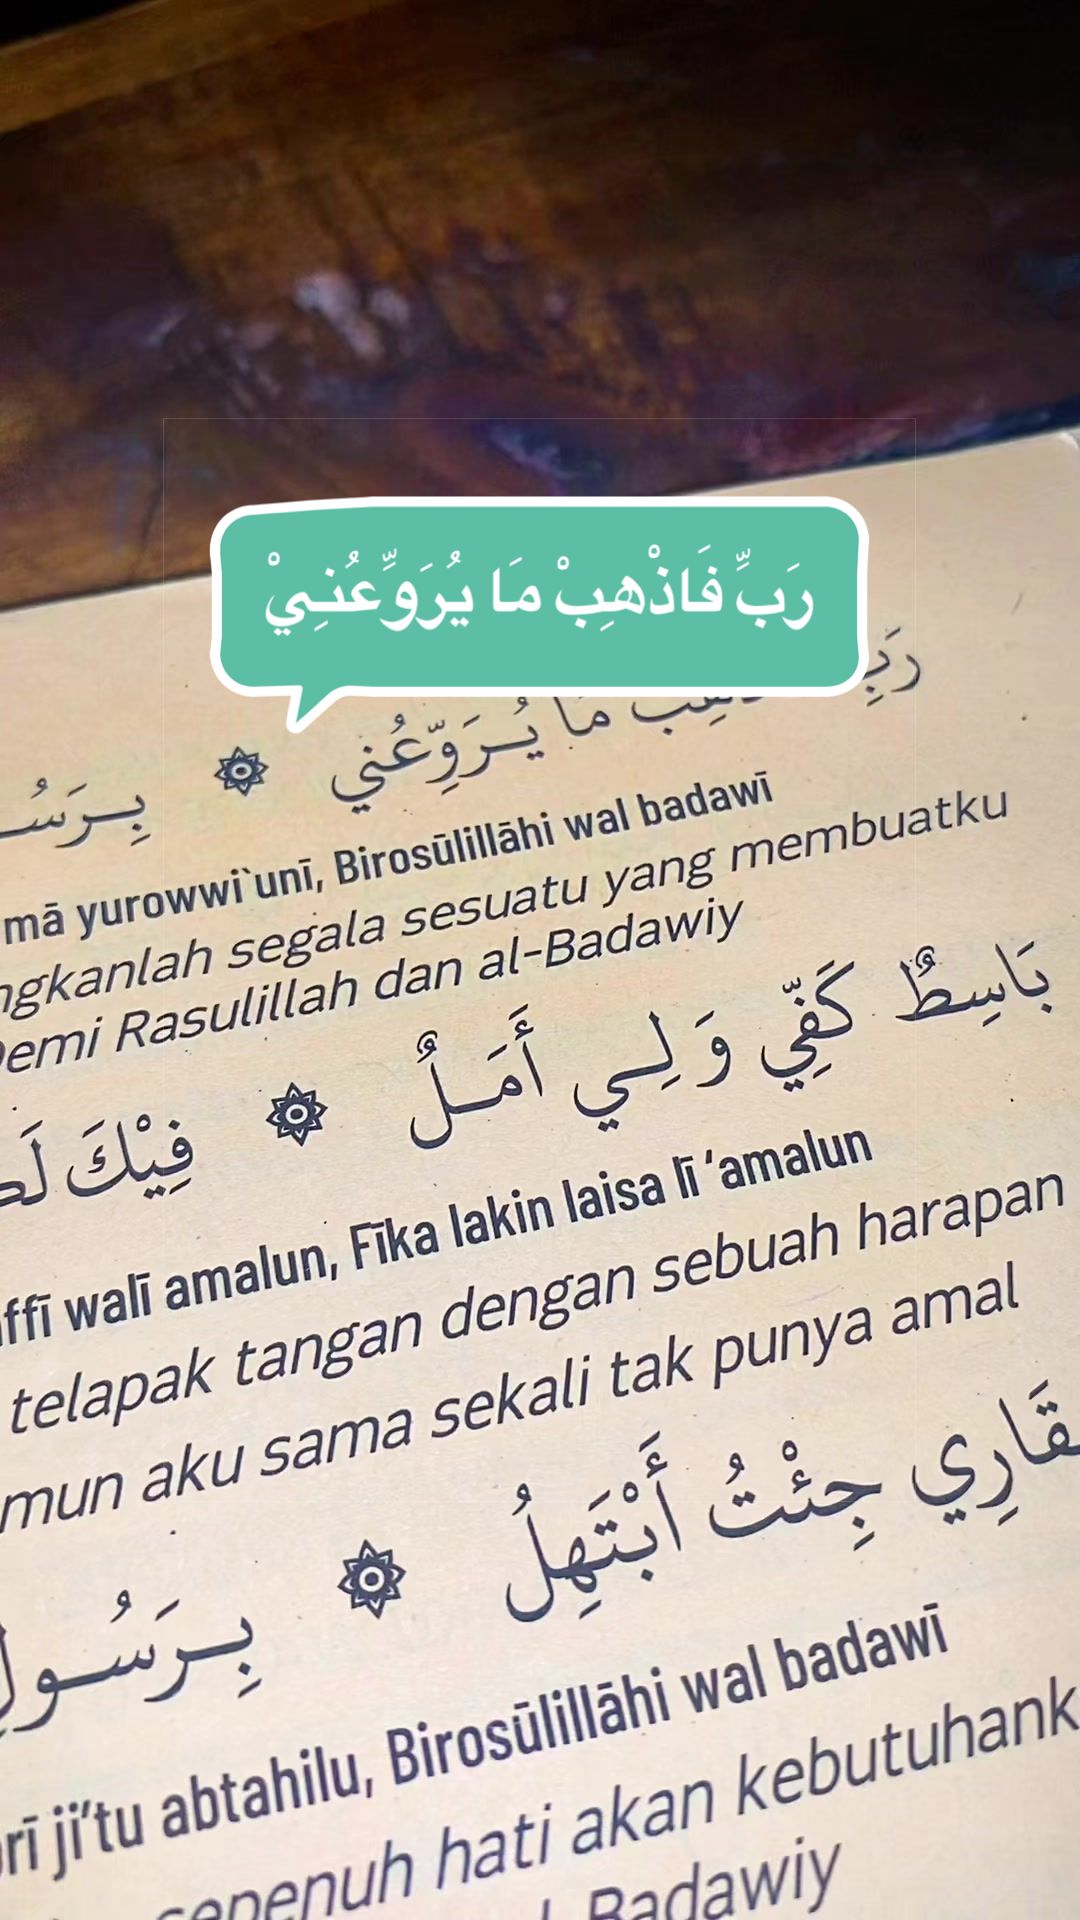 رَبِّ فَاذْهِبْ مَا يُرَوِّعُنِيْ
رَبِّ مَا يُرَوِّعُنِي
mā yurowwi`unī, Birosūlillāhi wal badawī
segala sesuatu yang membuatku
Rasulillah dan al-Badawiy
بَاسِطٌ كَفِّي وَلِي أَمَلٌ فِيْكَ
walī amalun, Fīka lakin laisa lī ‘amalun
telapak tangan dengan sebuah harapan
aku sama sekali tak punya amal
جِئْتُ أَبْتَهِلُ
ji’tu abtahilu, Birosūlillāhi wal badawī
hati akan
Badawiy